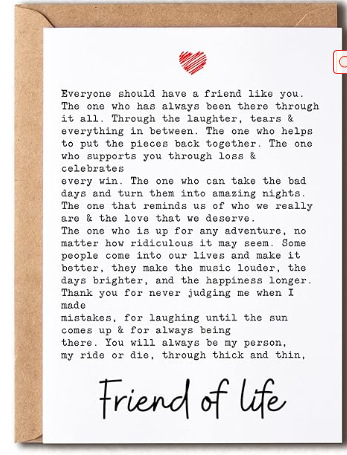 Everyone should have a friend like you.
The one who has always been there through
it all. Through the laughter, tears &
everything in between. The one who helps
to put the pieces back together. The one
who supports you through loss &
celebrates
every win. The one who can take the bad
days and turn them into amazing nights.
The one that reminds us of who we really
are & the love that we deserve.
The one who is up for any adventure, no
matter how ridiculous it may seem. Some
people come into our lives and make it
better, they make the music louder, the
days brighter, and the happiness longer.
Thank you for never judging me when I
made
mistakes, for laughing until the sun
comes up & for always being
there. You will always be my person,
my ride or die, through thick and thin,
Friend of life